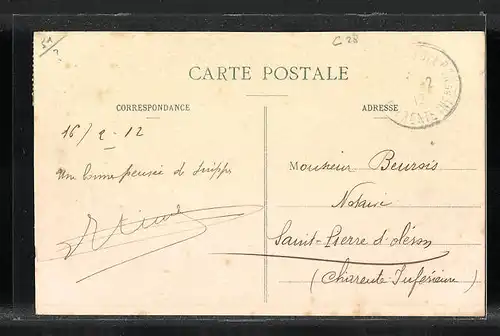 C 28
CARTE POSTALE
CORRESPONDANCE
ADRESSE
16/2-12
Une bonne pensée de
Monsieur Beursis
Notaire
Saint-Pierre d'Oléron
(Charente Inférieure)